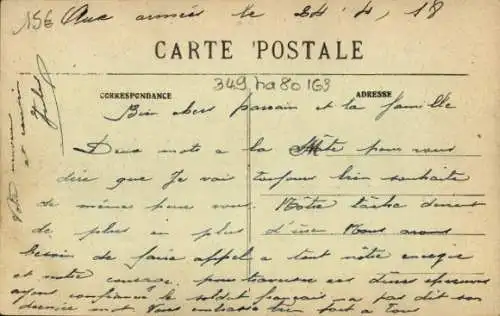 156 Aux armées le 24 4, 18
CARTE POSTALE
349 na 80 169
CORRESPONDANCE
ADRESSE
Bien chers parrain et la famille
Deux mots à la hâte pour vous
dire que Je vais toujours bien souhaite
de même pour vous. Nôtre tâche devient
de plus en plus Nous avons
besoin de faire appel a tout nôtre energie
et notre courage pour traverser ces dures épreuves
ayons confiance le soldat français na pas dit son
dernier mot Vous embrasse bien fort a Tous
Votre neveu
et cousin
Jules